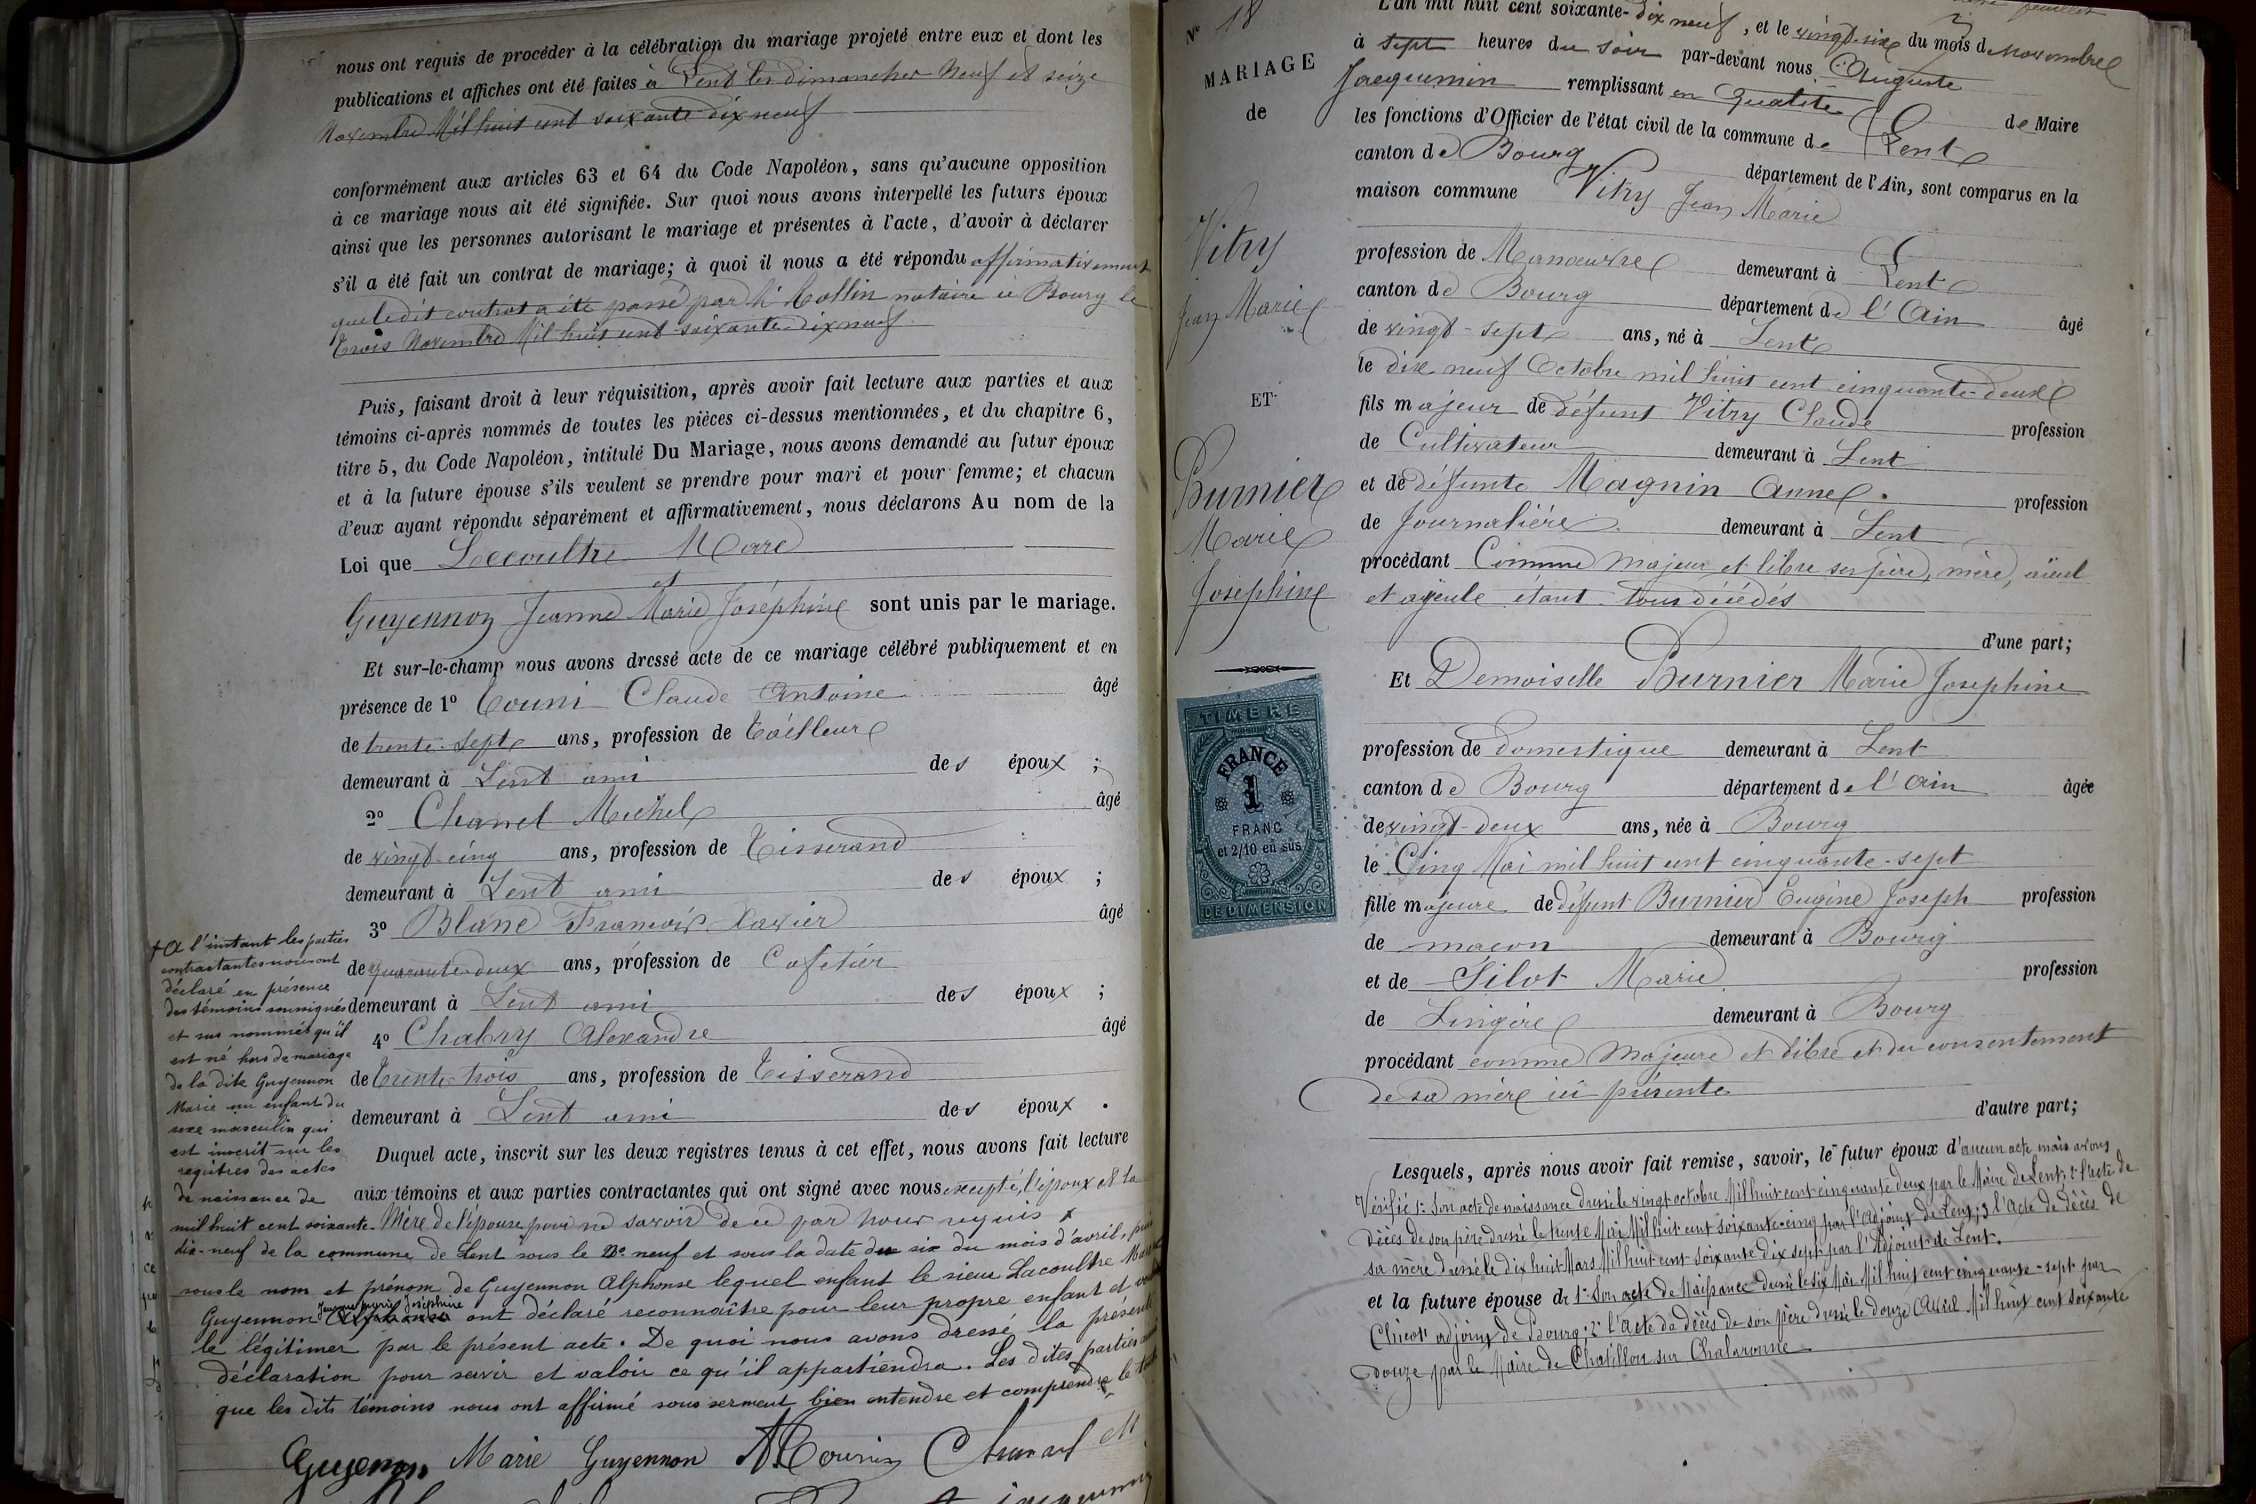 nous ont requis de procéder à la célébration du mariage projeté entre eux et dont les
publications et affiches ont été faites à Lent les dimanches Neuf et seize
Novembre Mil huit cent soixante dix neuf
conformément aux articles 63 et 64 du Code Napoléon, sans qu'aucune opposition
à ce mariage nous ait été signifiée. Sur quoi nous avons interpellé les futurs époux
ainsi que les personnes autorisant le mariage et présentes à l'acte, d'avoir à déclarer
s'il a été fait un contrat de mariage; à quoi il nous a été répondu affirmativement
que le dit contrat a été passé par Mr Collin notaire à Bourg le
trois Novembre Mil huit cent soixante dix neuf
Puis, faisant droit à leur réquisition, après avoir fait lecture aux parties et aux
témoins ci-après nommés de toutes les pièces ci-dessus mentionnées, et du chapitre 6,
titre 5, du Code Napoléon, intitulé Du Mariage, nous avons demandé au futur époux
et à la future épouse s'ils veulent se prendre pour mari et pour femme; et chacun
d'eux ayant répondu séparément et affirmativement, nous déclarons Au nom de la
Loi que Lecoultre Marc
et
Guyennon Jeanne Marie Joséphine sont unis par le mariage.
Et sur-le-champ nous avons dressé acte de ce mariage célébré publiquement et en
présence de 1º Claude Antoine âgé
de trente-sept ans, profession de Tailleur
demeurant à Lent ami des époux ;
2º Chanel Michel âgé
de vingt-cinq ans, profession de Tisserand
demeurant à Lent ami des époux ;
3º Blanc François-Xavier âgé
de quarante-deux ans, profession de Cafetier
demeurant à Lent ami des époux ;
4º Chabry Alexandre âgé
de Trente-trois ans, profession de Tisserand
demeurant à Lent ami des époux .
Duquel acte, inscrit sur les deux registres tenus à cet effet, nous avons fait lecture
aux témoins et aux parties contractantes qui ont signé avec nous excepté, l'époux et la
Mère de l'épouse pour ne savoir de ce par nous requis
+ A l'instant les parties
contractantes nous ont
déclaré en présence
des témoins soussignés
et sus nommés qu'il
est né hors de mariage
de la dite Guyennon
Marie un enfant du
sexe masculin qui
est inscrit sur les
registres des actes
de naissance de
mil huit cent soixante-
dix-neuf de la commune de Lent sous le No. neuf et sous la date du six du mois d'avril,
sous le nom et prénom de Guyennon Alphonse lequel enfant le sieur Lacoultre Marc
Jeanne Marie Joséphine
Guyennon ont déclaré reconnaître pour leur propre enfant et
le légitimer par le présent acte. De quoi nous avons dressé la présente
déclaration pour servir et valoir ce qu'il appartiendra. Les dites parties
que les dits témoins nous ont affirmé sous serment bien entendre et comprendre le
Guyennon Marie Guyennon
Nº 18
MARIAGE
de
Vitry
Jean Marie
ET
Burnier
Marie
Josephine
TIMBRE
FRANCE
1
FRANC
et 2/10 en sus
DE DIMENSION
L'an mil huit cent soixante-dix neuf, et le vingt-six du mois de Novembre
à sept heures du soir par-devant nous Auguste
Jacquemin remplissant en qualité de Maire
les fonctions d'Officier de l'état civil de la commune de Lent
canton de Bourg département de l'Ain, sont comparus en la
maison commune Vitry Jean Marie
profession de Manœuvre demeurant à Lent
canton de Bourg département de l'Ain âgé
de vingt-sept ans, né à Lent
le dix neuf Octobre mil huit cent cinquante-deux
fils majeur de défunt Vitry Claude profession
de Cultivateur demeurant à Lent
et de défunte Magnin Anne profession
de Journalière demeurant à Lent
procédant Comme majeur et libre ses père, mère, aïeul
et ayeule étant tous décédés
d'une part;
Et Demoiselle Burnier Marie Josephine
profession de domestique demeurant à Lent
canton de Bourg département de l'Ain âgée
de vingt-deux ans, née à Bourg
le Cinq Mai mil huit cent cinquante-sept
fille majeure de défunt Burnier Eugène Joseph profession
de maçon demeurant à Bourg
et de Silot Marie profession
de Lingère demeurant à Bourg
procédant comme Majeure et libre et du consentement
de sa mère ici présente
d'autre part;
Lesquels, après nous avoir fait remise, savoir, le futur époux d'aucun acte mais avons
Vérifié 1º Son acte de naissance dressé le vingt octobre Mil huit cent cinquante deux par le Maire de Lent; 2º l'acte de
décès de son père dressé le trente Mai Mil huit cent soixante-cinq par l'Adjoint de Lent; 3º l'acte de décès de
sa mère dressé le dix huit Mars Mil huit cent soixante dix sept par l'Adjoint de Lent.
et la future épouse de 1º Son acte de Naissance dressé le six Mai Mil huit cent cinquante-sept par
Chicot adjoint de Bourg; 2º l'acte de décès de son père dressé le douze Avril Mil huit cent soixante
douze par le Maire de Chatillon sur Chalaronne